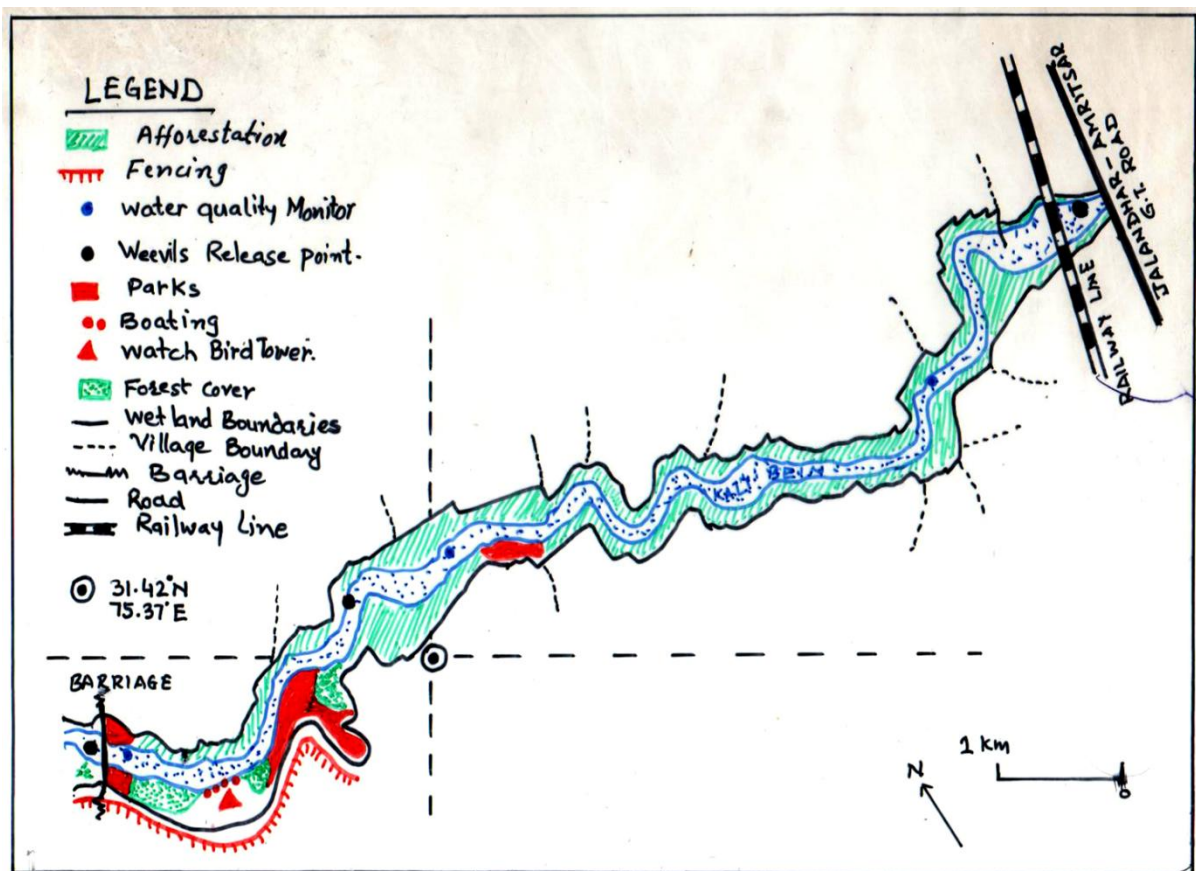 LEGEND
Afforestation
Fencing
water quality Monitor
Weevils Release point.
Parks
Boating
watch Bird Tower.
Forest cover
Wetland Boundaries
Village Boundary
Barriage
Road
Railway Line
31.42°N
75.37°E
BARRIAGE
KALI BEIN
RAILWAY LINE
JALANDHAR - AMRITSAR
G.T. ROAD
1 km
0
N